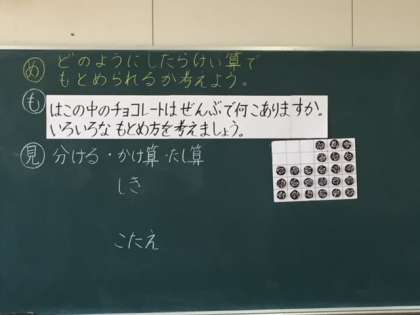 め どのようにしたらけい算で
もとめられるか考えよう。
も はこの中のチョコレートはぜんぶで何こありますか。
いろいろなもとめ方を考えましょう。
見 分ける・かけ算・たし算
しき
こたえ